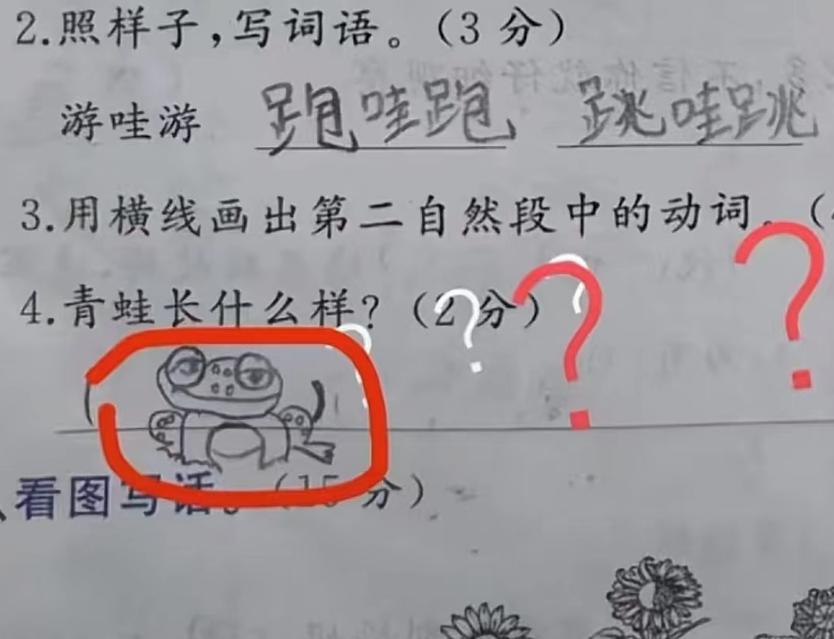 2.照样子,写词语。(3分)
游哇游 跑哇跑 跳哇跳
3.用横线画出第二自然段中的动词。(
4.青蛙长什么样?(2分)
? ? ? ? ?
( )
看图写话。(15分)